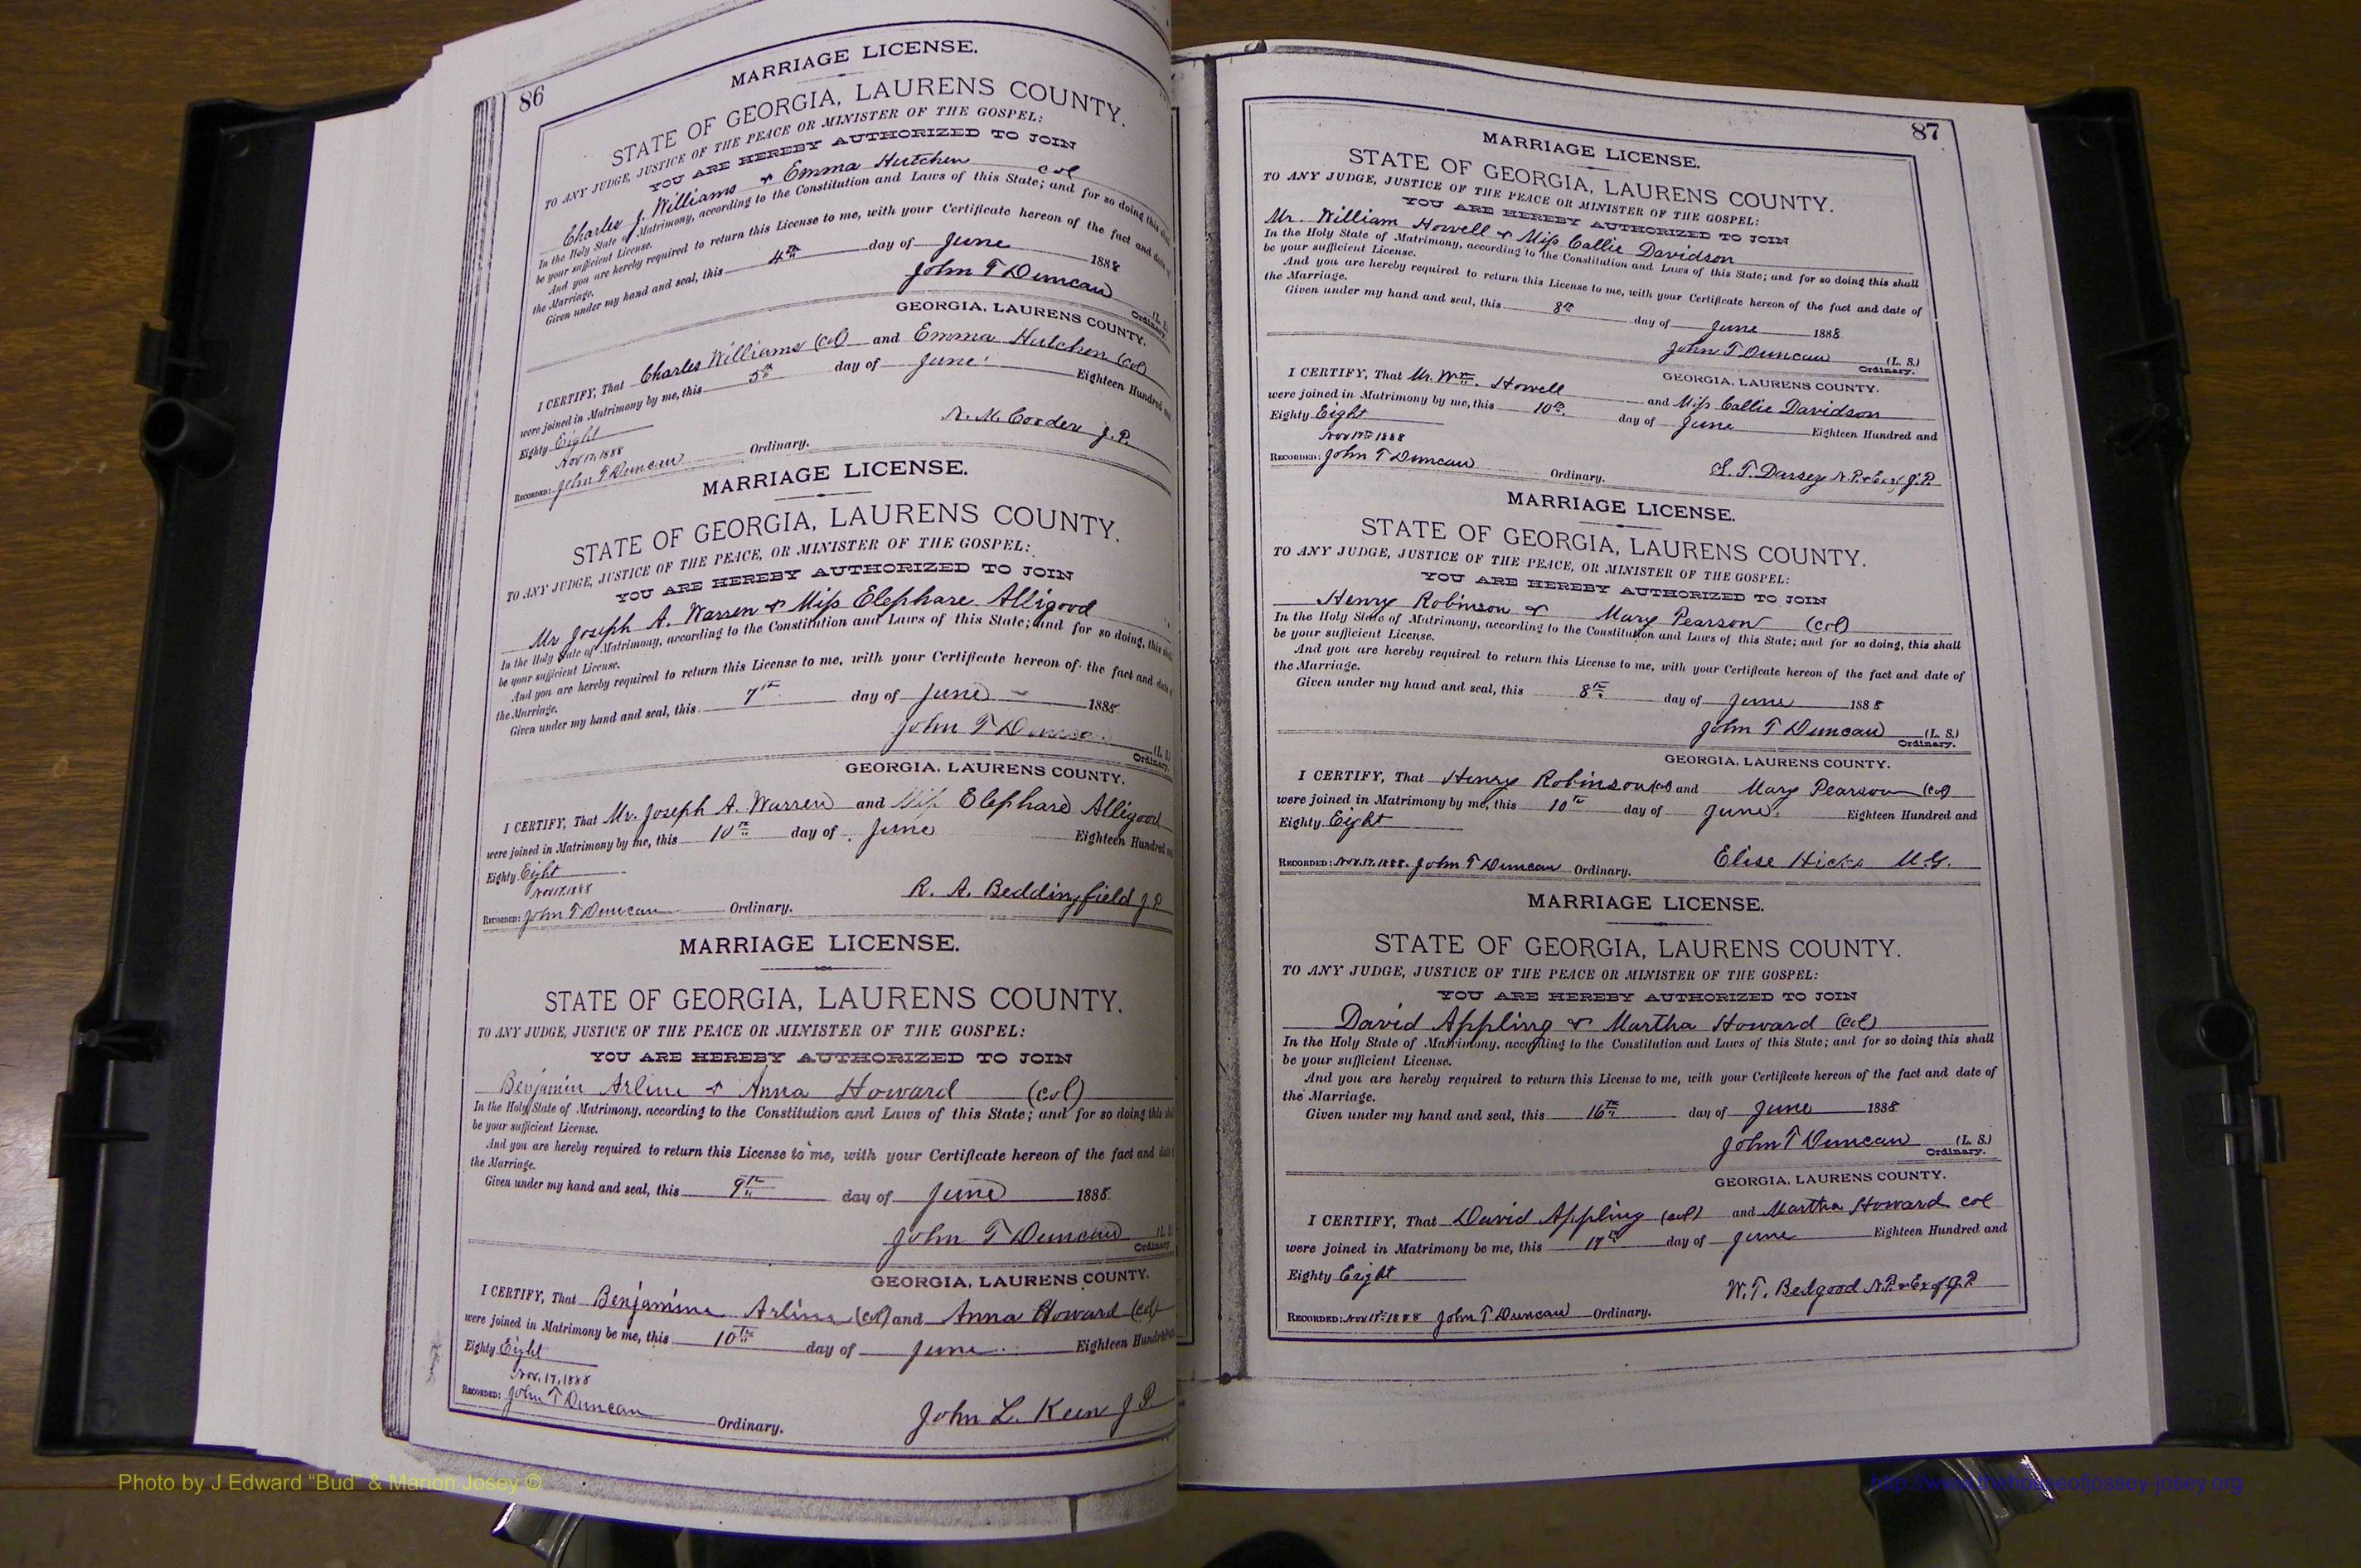 86
MARRIAGE LICENSE.
STATE OF GEORGIA, LAURENS COUNTY.
TO ANY JUDGE, JUSTICE OF THE PEACE OR MINISTER OF THE GOSPEL:
YOU ARE HEREBY AUTHORIZED TO JOIN
Charles J. Williams & Emma Hutchen col
In the Holy State of Matrimony, according to the Constitution and Laws of this State; and for so doing this shall
be your sufficient License.
And you are hereby required to return this License to me, with your Certificate hereon of the fact and date
the Marriage.
Given under my hand and seal, this 4th day of June 1888
John T Duncan (L.
Ordinary.
GEORGIA, LAURENS COUNTY.
I CERTIFY, That Charles Williams (col) and Emma Hutchen (col)
were joined in Matrimony by me, this 5th day of June Eighteen Hundred
Eighty Eight
Nov 17, 1888
RECORDED: John T Duncan Ordinary.
N. M. Corder J.P.
MARRIAGE LICENSE.
STATE OF GEORGIA, LAURENS COUNTY.
TO ANY JUDGE, JUSTICE OF THE PEACE, OR MINISTER OF THE GOSPEL:
YOU ARE HEREBY AUTHORIZED TO JOIN
Mr Joseph A. Warren & Miss Elephare Alligood
In the Holy State of Matrimony, according to the Constitution and Laws of this State; and for so doing, this shall
be your sufficient License.
And you are hereby required to return this License to me, with your Certificate hereon of the fact and date
the Marriage.
Given under my hand and seal, this 7th day of June 1888
John T Duncan (L.
Ordinary.
GEORGIA, LAURENS COUNTY.
I CERTIFY, That Mr. Joseph A. Warren and Miss Elephare Alligood
were joined in Matrimony by me, this 10th day of June Eighteen Hundred
Eighty Eight
Nov 17, 1888
RECORDED: John T Duncan Ordinary.
R. A. Beddingfield J.P
MARRIAGE LICENSE.
STATE OF GEORGIA, LAURENS COUNTY.
TO ANY JUDGE, JUSTICE OF THE PEACE OR MINISTER OF THE GOSPEL:
YOU ARE HEREBY AUTHORIZED TO JOIN
Benjamin Arline & Anna Howard (col)
In the Holy State of Matrimony, according to the Constitution and Laws of this State; and for so doing this shall
be your sufficient License.
And you are hereby required to return this License to me, with your Certificate hereon of the fact and date
the Marriage.
Given under my hand and seal, this 9th day of June 1888
John T Duncan (L.
Ordinary
GEORGIA, LAURENS COUNTY.
I CERTIFY, That Benjamine Arline (col) and Anna Howard (col)
were joined in Matrimony be me, this 10th day of June Eighteen Hundred
Eighty Eight
Nov. 17, 1888
RECORDED: John T Duncan Ordinary.
John L. Keen J P.
87
MARRIAGE LICENSE.
STATE OF GEORGIA, LAURENS COUNTY.
TO ANY JUDGE, JUSTICE OF THE PEACE OR MINISTER OF THE GOSPEL:
YOU ARE HEREBY AUTHORIZED TO JOIN
Mr. William Howell & Miss Callie Davidson
In the Holy State of Matrimony, according to the Constitution and Laws of this State; and for so doing this shall
be your sufficient License.
And you are hereby required to return this License to me, with your Certificate hereon of the fact and date of
the Marriage.
Given under my hand and seal, this 8th day of June 1888
John T Duncan (L. S.)
Ordinary.
GEORGIA, LAURENS COUNTY.
I CERTIFY, That Mr. Wm. Howell and Miss Callie Davidson
were joined in Matrimony by me, this 10th day of June Eighteen Hundred and
Eighty Eight
Nov 17th 1888
RECORDED: John T Duncan Ordinary.
S. T. Darsey N.P. & Exof J.P.
MARRIAGE LICENSE.
STATE OF GEORGIA, LAURENS COUNTY.
TO ANY JUDGE, JUSTICE OF THE PEACE, OR MINISTER OF THE GOSPEL:
YOU ARE HEREBY AUTHORIZED TO JOIN
Henry Robinson & Mary Pearson (col)
In the Holy State of Matrimony, according to the Constitution and Laws of this State; and for so doing, this shall
be your sufficient License.
And you are hereby required to return this License to me, with your Certificate hereon of the fact and date of
the Marriage.
Given under my hand and seal, this 8th day of June 1888
John T Duncan (L. S.)
Ordinary.
GEORGIA, LAURENS COUNTY.
I CERTIFY, That Henry Robinson (col) and Mary Pearson (col)
were joined in Matrimony by me, this 10th day of June Eighteen Hundred and
Eighty Eight
RECORDED: Nov. 17, 1888. John T Duncan Ordinary.
Elise Hicks M.G.
MARRIAGE LICENSE.
STATE OF GEORGIA, LAURENS COUNTY.
TO ANY JUDGE, JUSTICE OF THE PEACE OR MINISTER OF THE GOSPEL:
YOU ARE HEREBY AUTHORIZED TO JOIN
David Appling & Martha Howard (col)
In the Holy State of Matrimony, according to the Constitution and Laws of this State; and for so doing this shall
be your sufficient License.
And you are hereby required to return this License to me, with your Certificate hereon of the fact and date of
the Marriage.
Given under my hand and seal, this 16th day of June 1888
John T Duncan (L. S.)
Ordinary.
GEORGIA, LAURENS COUNTY.
I CERTIFY, That David Appling (col) and Martha Howard col
were joined in Matrimony be me, this 17th day of June Eighteen Hundred and
Eighty Eight
W. T. Bedgood N.P. & Exof J.P.
RECORDED: Nov 17th 1888 John T Duncan Ordinary.
Photo by J Edward "Bud" & Marion Josey ©
http://www.thehouseofjossey-josey.org